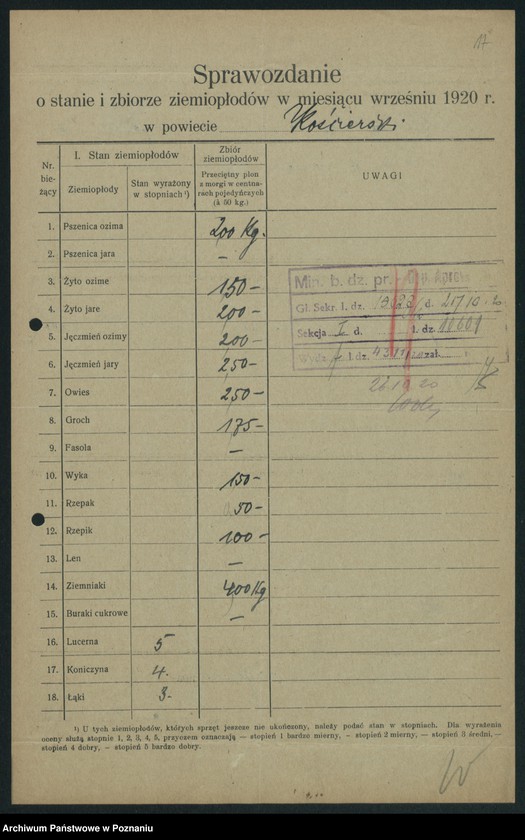 17
Sprawozdanie
o stanie i zbiorze ziemiopłodów w miesiącu wrześniu 1920 r.
w powiecie Kościerski
Nr. bieżący
I. Stan ziemiopłodów
Ziemiopłody
Stan wyrażony w stopniach ¹)
Zbiór ziemiopłodów
Przeciętny plon z morgi w centnarach pojedyńczych (à 50 kg.)
UWAGI
1. Pszenica ozima 200 Kg.
2. Pszenica jara —
3. Żyto ozime 150 —
4. Żyto jare 200 —
5. Jęczmień ozimy 200 —
6. Jęczmień jary 250 —
7. Owies 250 —
8. Groch 175 —
9. Fasola —
10. Wyka 150 —
11. Rzepak 50 —
12. Rzepik 100 —
13. Len —
14. Ziemniaki 400 Kg
15. Buraki cukrowe —
16. Lucerna 5
17. Koniczyna 4.
18. Łąki 3.
Min. b. dz. pr.
Gł. Sekr. l. dz. d.
Sekcja I d. l. dz.
l. dz. zał.
¹) U tych ziemiopłodów, których sprzęt jeszcze nie ukończony, należy podać stan w stopniach. Dla wyrażenia
oceny służą stopnie 1, 2, 3, 4, 5, przyczem oznaczają — stopień 1 bardzo mierny, — stopień 2 mierny, — stopień 3 średni, —
stopień 4 dobry, — stopień 5 bardzo dobry.
Archiwum Państwowe w Poznaniu